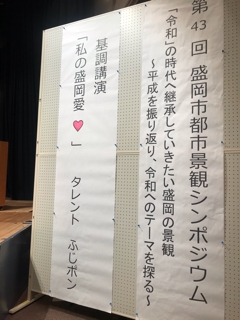 第43回 盛岡市都市景観シンポジウム
「令和」の時代へ継承していきたい盛岡の景観
～平成を振り返り、令和へのテーマを探る～
基調講演
「私の盛岡愛♥」 タレント ふじポン